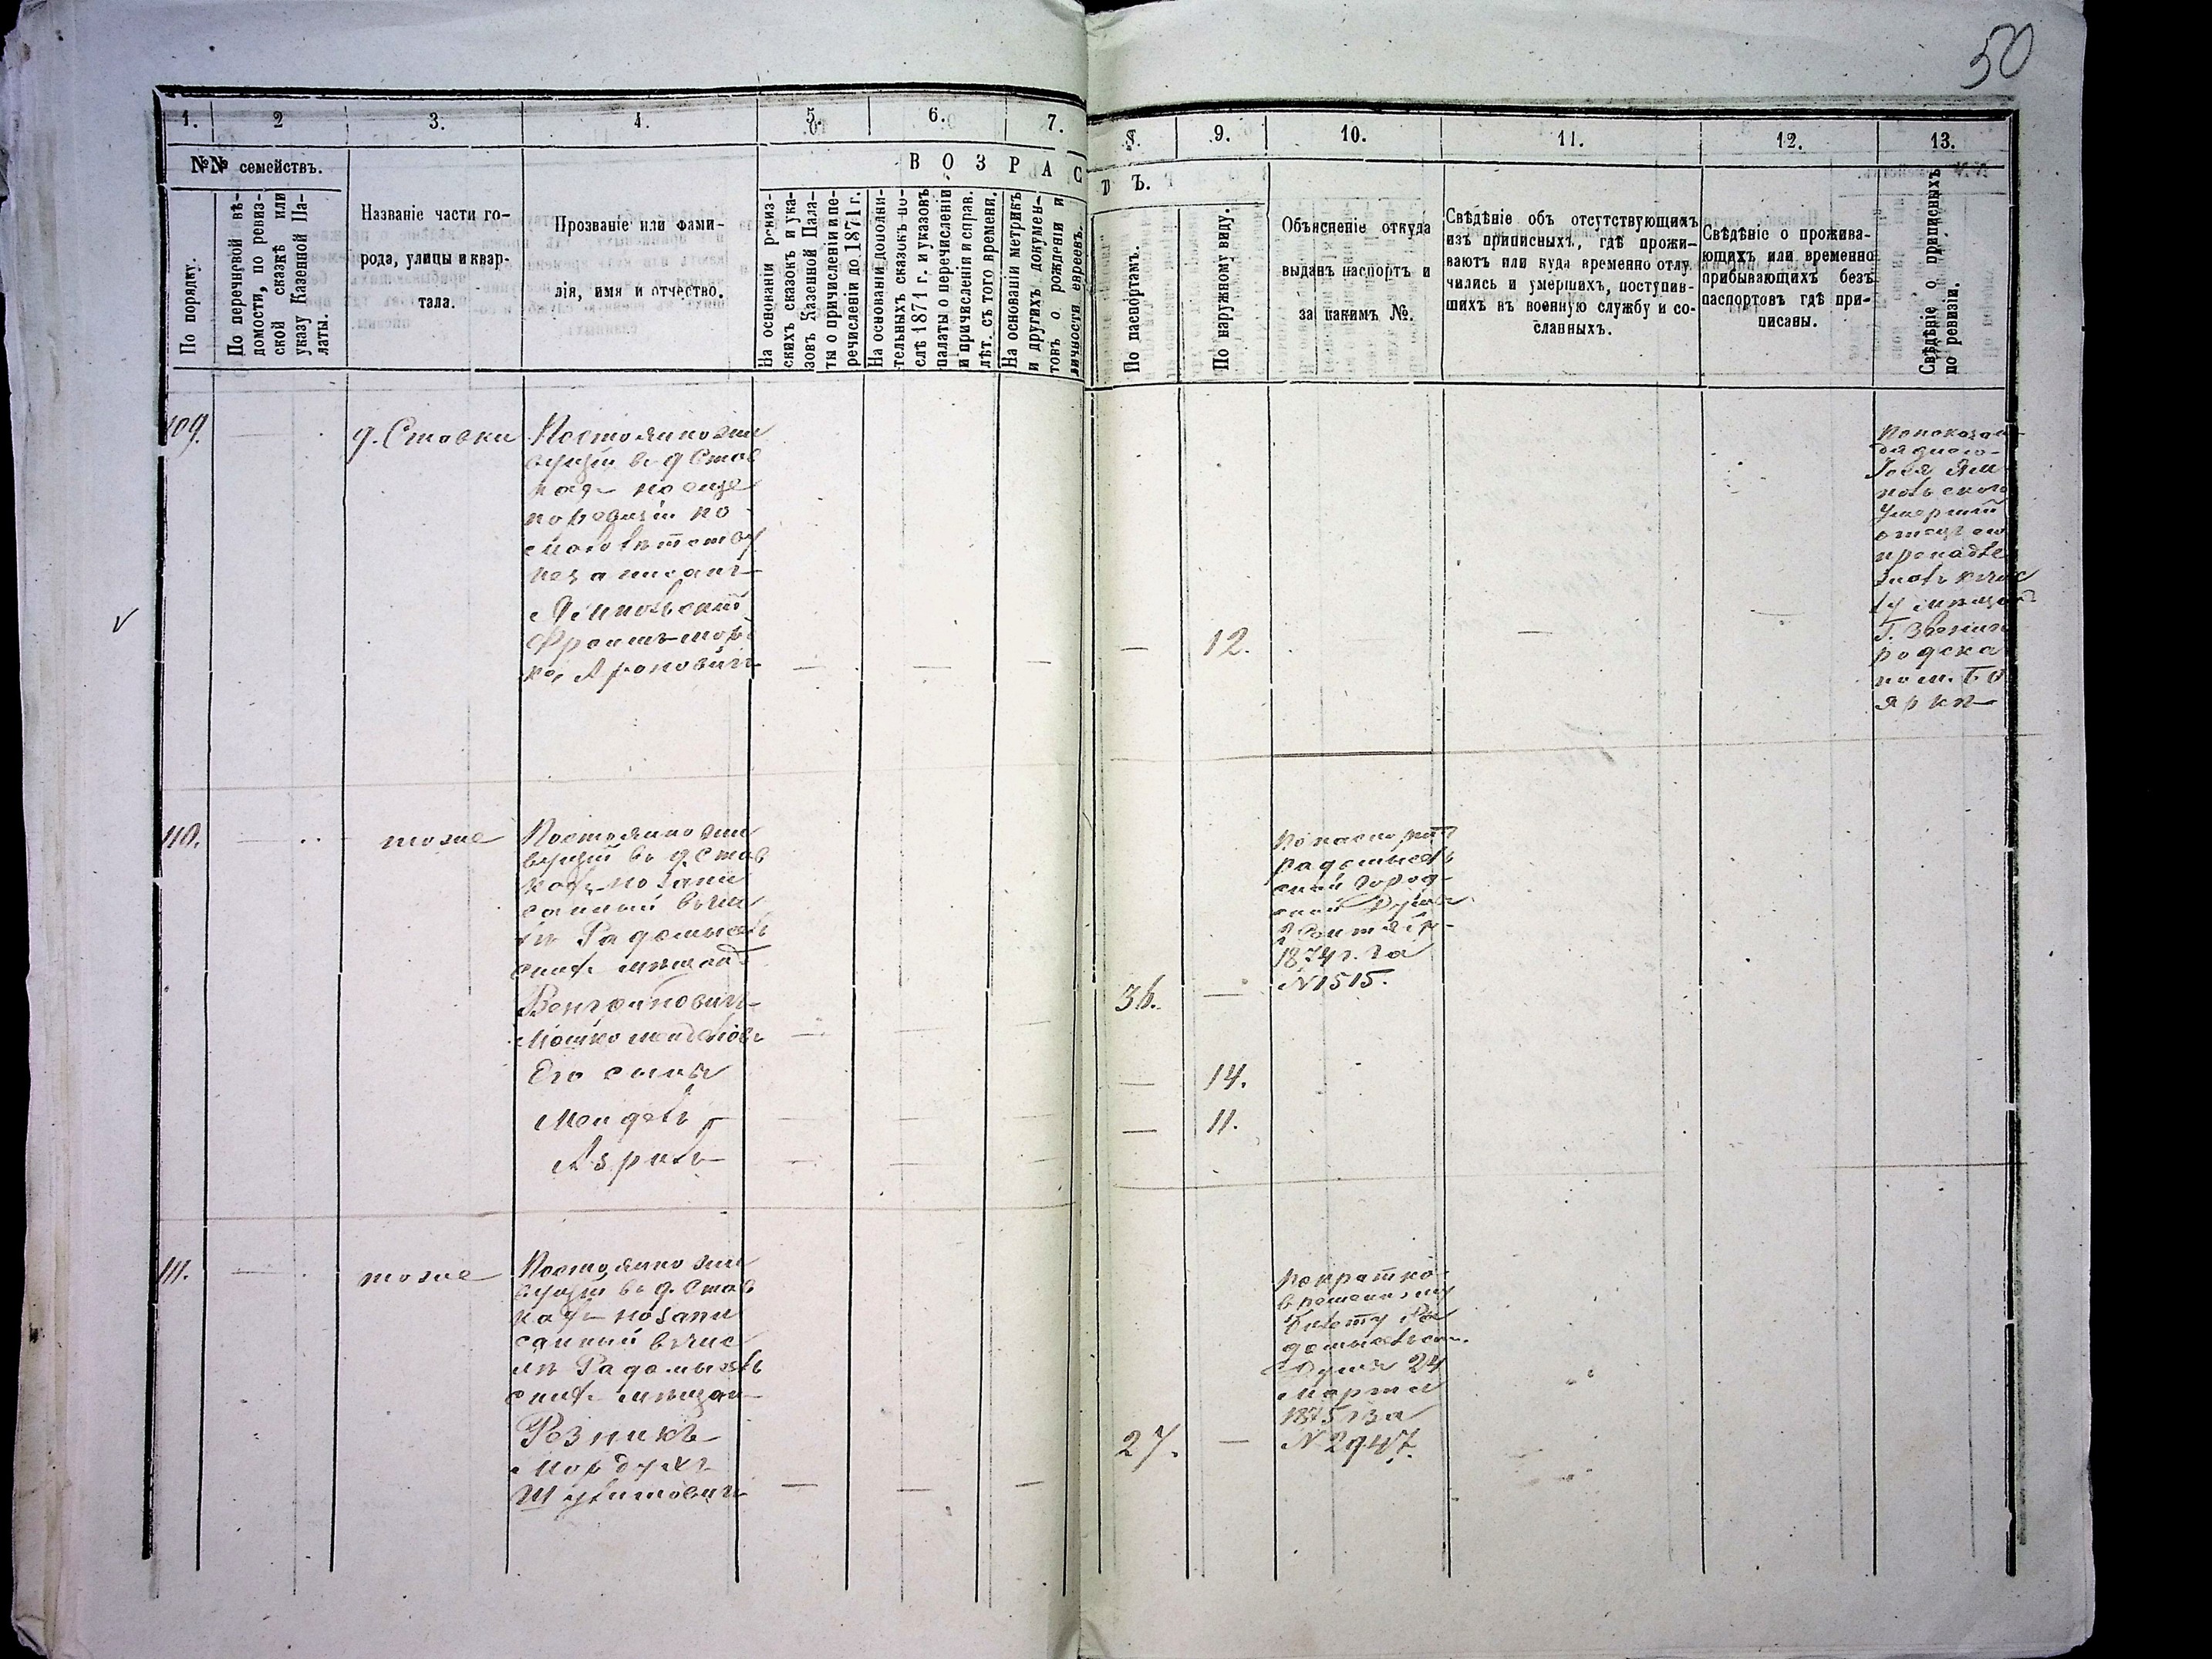 50
1. 2 3. 4. 5. 6. 7. 8. 9. 10. 11. 12. 13.
№№ семействъ.
В О З Р А С Т Ъ.
По порядку.
По перечневой вѣ-
домости, по ревиз-
ской сказкѣ или
указу Казенной Па-
латы.
Названіе части го-
рода, улицы и квар-
тала.
Прозваніе или фами-
лія, имя и отчество.
На основаніи ревиз-
скихъ сказокъ и ука-
зовъ Казенной Пала-
ты о причисленіи и пе-
речисленіи до 1871 г.
На основаніи дополни-
тельныхъ сказокъ по-
слѣ 1871 г. и указовъ
палаты о перечисленіи
и причисленіи и справ.
лѣт. съ того времени.
На основаніи метрикъ
и другихъ докумен-
товъ о рожденіи и
личности евреевъ.
По паспортамъ.
По наружному виду.
Объясненіе откуда
выданъ паспортъ и
за какимъ №.
Свѣдѣніе объ отсутствующихъ
изъ приписныхъ, гдѣ прожи-
ваютъ или куда временно отлу
чились и умершихъ, поступив-
шихъ въ военную службу и со-
сланныхъ.
Свѣдѣніе о прожива-
ющихъ или временно
прибывающихъ безъ
паспортовъ гдѣ при-
писаны.
Свѣдѣніе о приписныхъ
по ревизіи.
109.
д. Ставки
Постоянно жи
вущій въ д Став
кахъ но еще
по ревизіи по
малолѣтству
незаписанъ
Ямпольскій
Фроимъ-морд
ко, Ароновичъ
12.
По показан
дядиного
Іося Ям
польского
Умершій
отецъ его
принадле
жалъ къ чис
лу мѣщан
Г. Звенино
родска
по м. Бо
яркѣ
110.
тоже
Постоянно жи
вущій въ д. Став
кахъ но запи
санный въ чи
слѣ Радомысль
скихъ мѣщан
Мошко мендѣловъ
Его сыны
Мендель
Азриль
36.
14.
11.
По паспорту
радомысль
ской город
ской Думы
1874 г. за
№ 1515.
111.
тоже
Постоянно жи
вущій въ д. Став
кахъ но запи
санный въ чис
лѣ Радомысль
скихъ мѣщан
Резникъ
Мордухъ
Шулимовичъ
27.
По кратко
временному
билету Ра
домысльск.
Думы 24
марта
1875 г за
№ 2947.